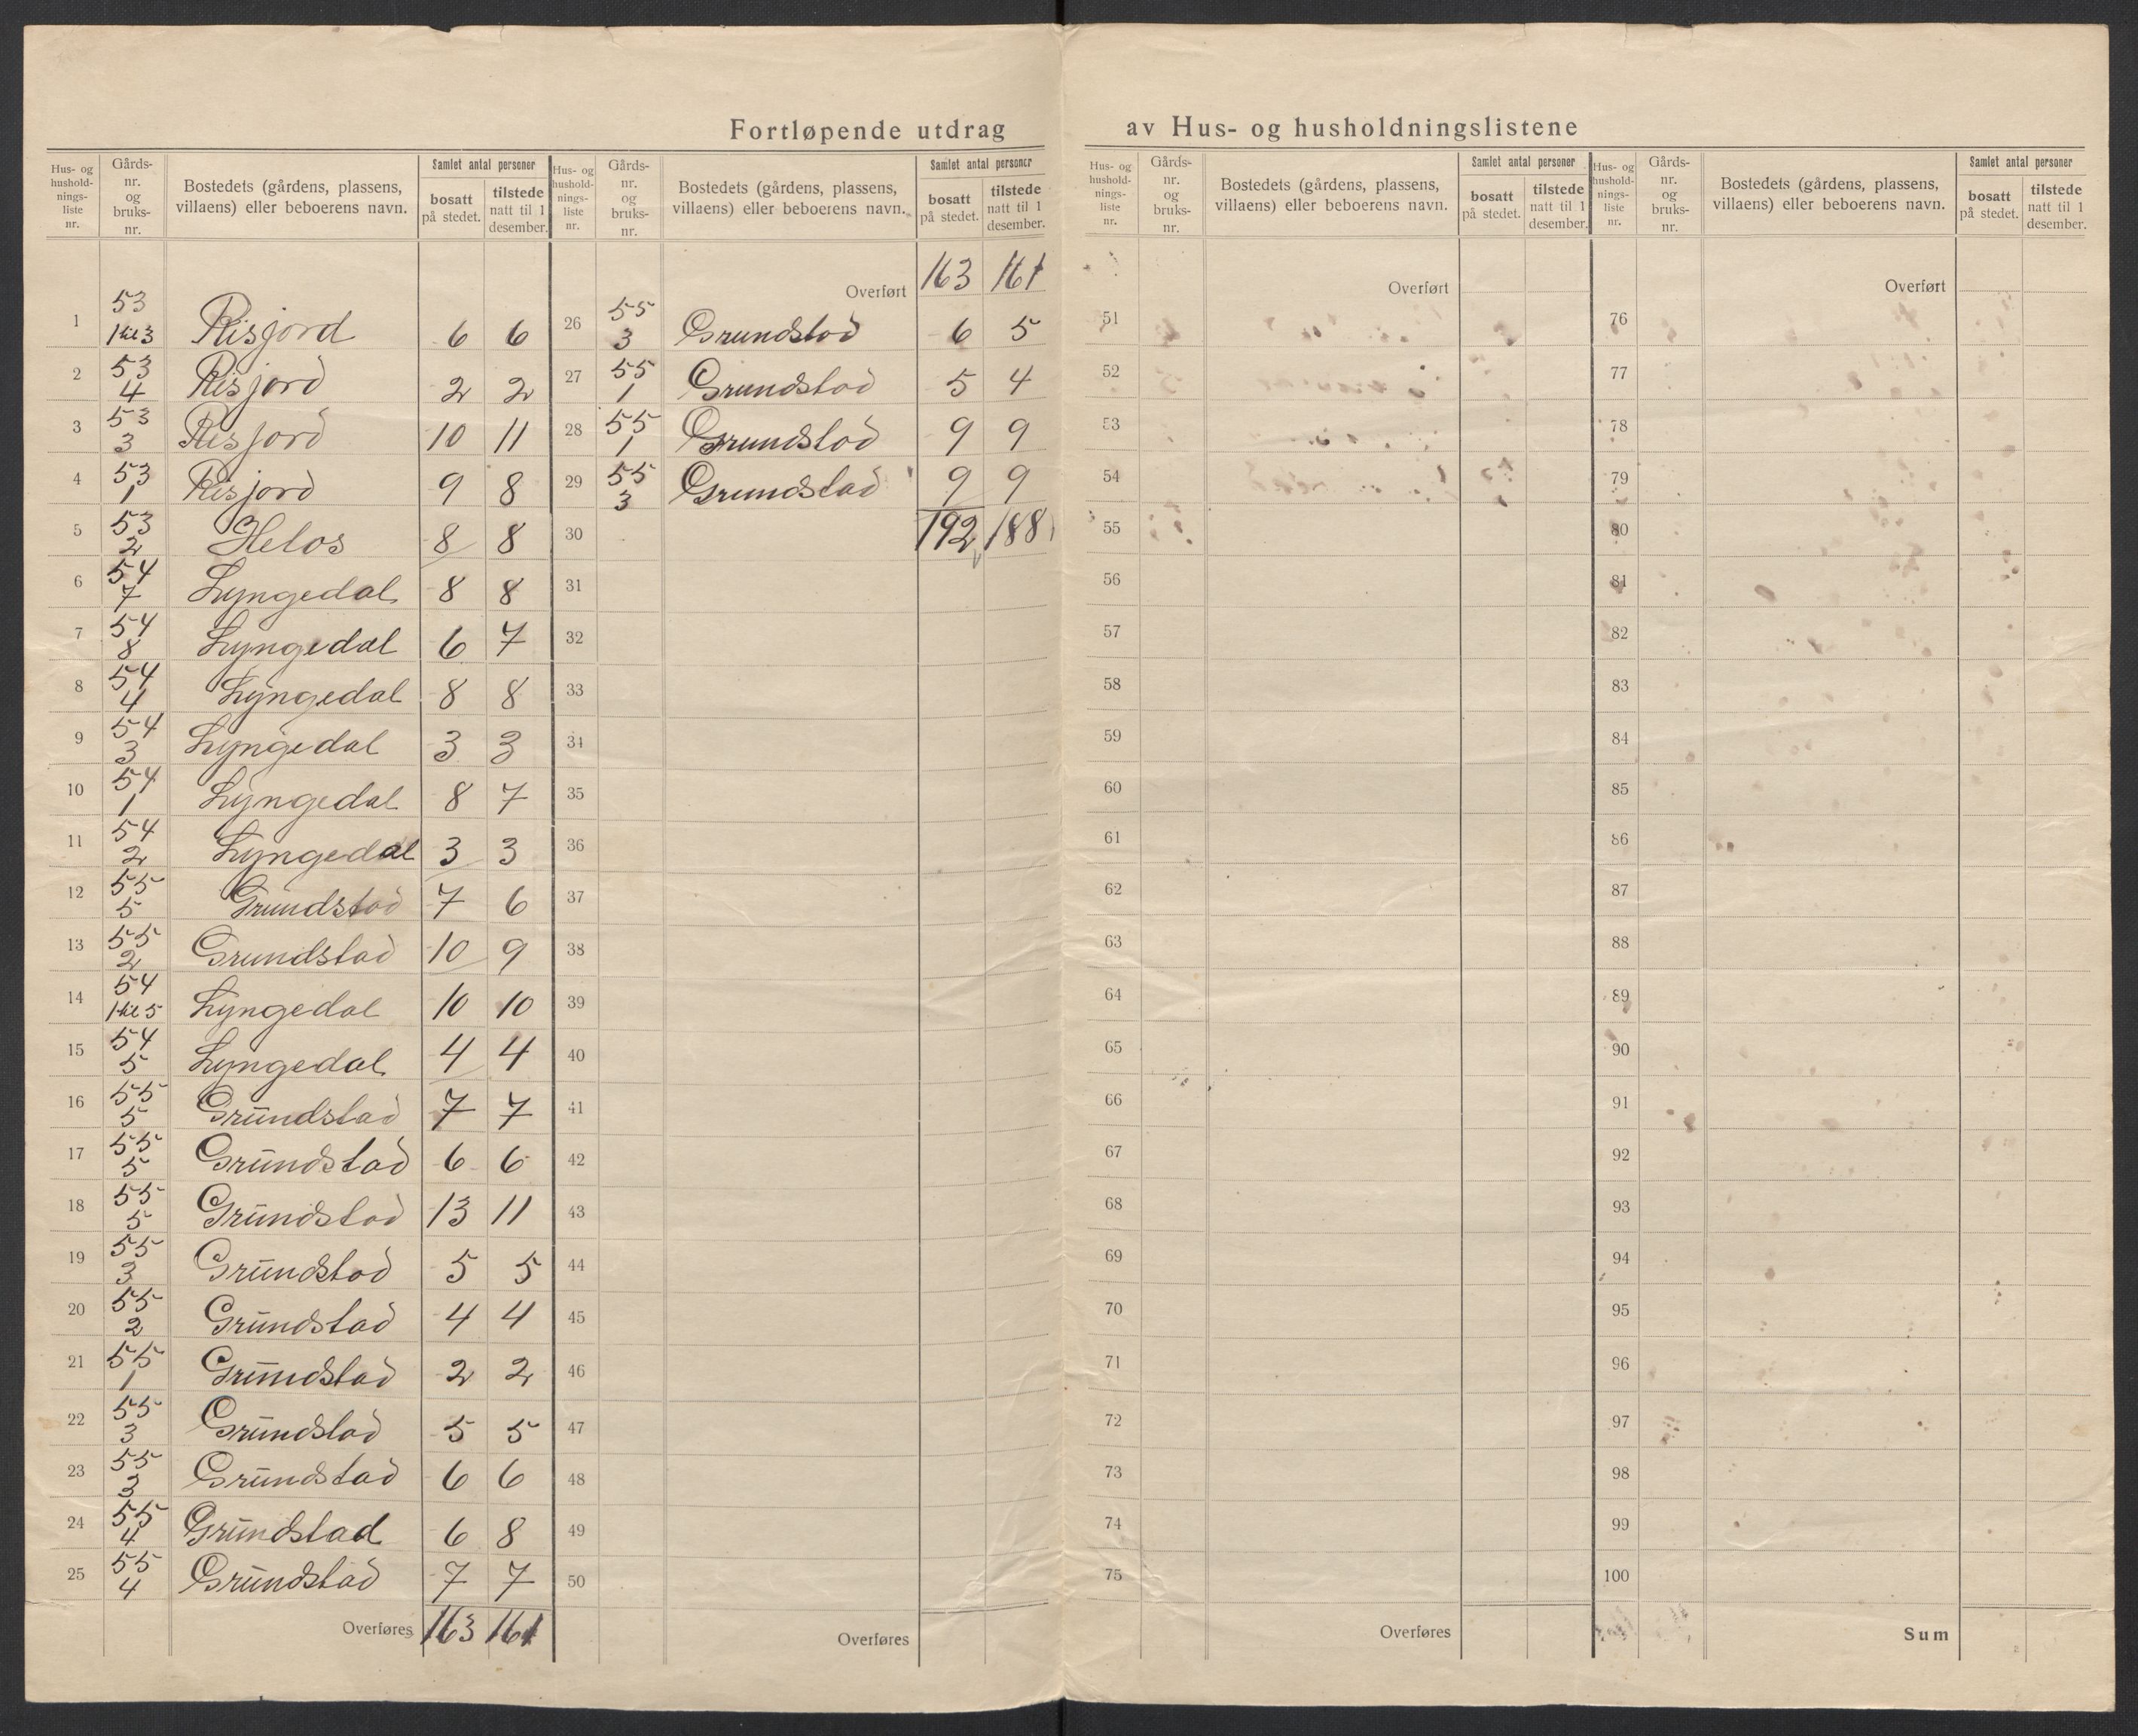 Fortløpende utdrag av Hus- og husholdningslistene
Hus- og husholdnings-liste nr. | Gårds-nr. og bruks-nr. | Bostedets (gårdens, plassens, villaens) eller beboerens navn. | Samlet antal personer bosatt på stedet. | tilstede natt til 1 desember.
1 | 53 1 til 3 | Risjord | 6 | 6
2 | 53 4 | Risjord | 2 | 2
3 | 53 3 | Risjord | 10 | 11
4 | 53 1 | Risjord | 9 | 8
5 | 53 2 | Helos | 8 | 8
6 | 54 7 | Lyngedal | 8 | 8
7 | 54 8 | Lyngedal | 6 | 7
8 | 54 4 | Lyngedal | 8 | 8
9 | 54 3 | Lyngedal | 3 | 3
10 | 54 1 | Lyngedal | 8 | 7
11 | 54 2 | Lyngedal | 3 | 3
12 | 55 5 | Grundstad | 7 | 6
13 | 55 2 | Grundstad | 10 | 9
14 | 54 1 til 5 | Lyngedal | 10 | 10
15 | 54 5 | Lyngedal | 4 | 4
16 | 55 5 | Grundstad | 7 | 7
17 | 55 5 | Grundstad | 6 | 6
18 | 55 5 | Grundstad | 13 | 11
19 | 55 3 | Grundstad | 5 | 5
20 | 55 2 | Grundstad | 4 | 4
21 | 55 1 | Grundstad | 2 | 2
22 | 55 3 | Grundstad | 5 | 5
23 | 55 3 | Grundstad | 6 | 6
24 | 55 4 | Grundstad | 6 | 8
25 | 55 4 | Grundstad | 7 | 7
Overføres | 163 | 161
Hus- og hushold-nings-liste nr. | Gårds-nr. og bruks-nr. | Bostedets (gårdens, plassens, villaens) eller beboerens navn. | Samlet antal personer bosatt på stedet. | tilstede natt til 1 desember.
Overført | 163 | 161
26 | 55 3 | Grundstad | 6 | 5
27 | 55 1 | Grundstad | 5 | 4
28 | 55 1 | Grundstad | 9 | 9
29 | 55 3 | Grundstad | 9 | 9
30 | 192 | 188
31
32
33
34
35
36
37
38
39
40
41
42
43
44
45
46
47
48
49
50
Overføres
Hus- og hushold-nings-liste nr. | Gårds-nr. og bruks-nr. | Bostedets (gårdens, plassens, villaens) eller beboerens navn. | Samlet antal personer bosatt på stedet. | tilstede natt til 1 desember.
Overført
51
52
53
54
55
56
57
58
59
60
61
62
63
64
65
66
67
68
69
70
71
72
73
74
75
Overføres
Hus- og hushold-nings-liste nr. | Gårds-nr. og bruks-nr. | Bostedets (gårdens, plassens, villaens) eller beboerens navn. | Samlet antal personer bosatt på stedet. | tilstede natt til 1 desember.
Overført
76
77
78
79
80
81
82
83
84
85
86
87
88
89
90
91
92
93
94
95
96
97
98
99
100
Sum